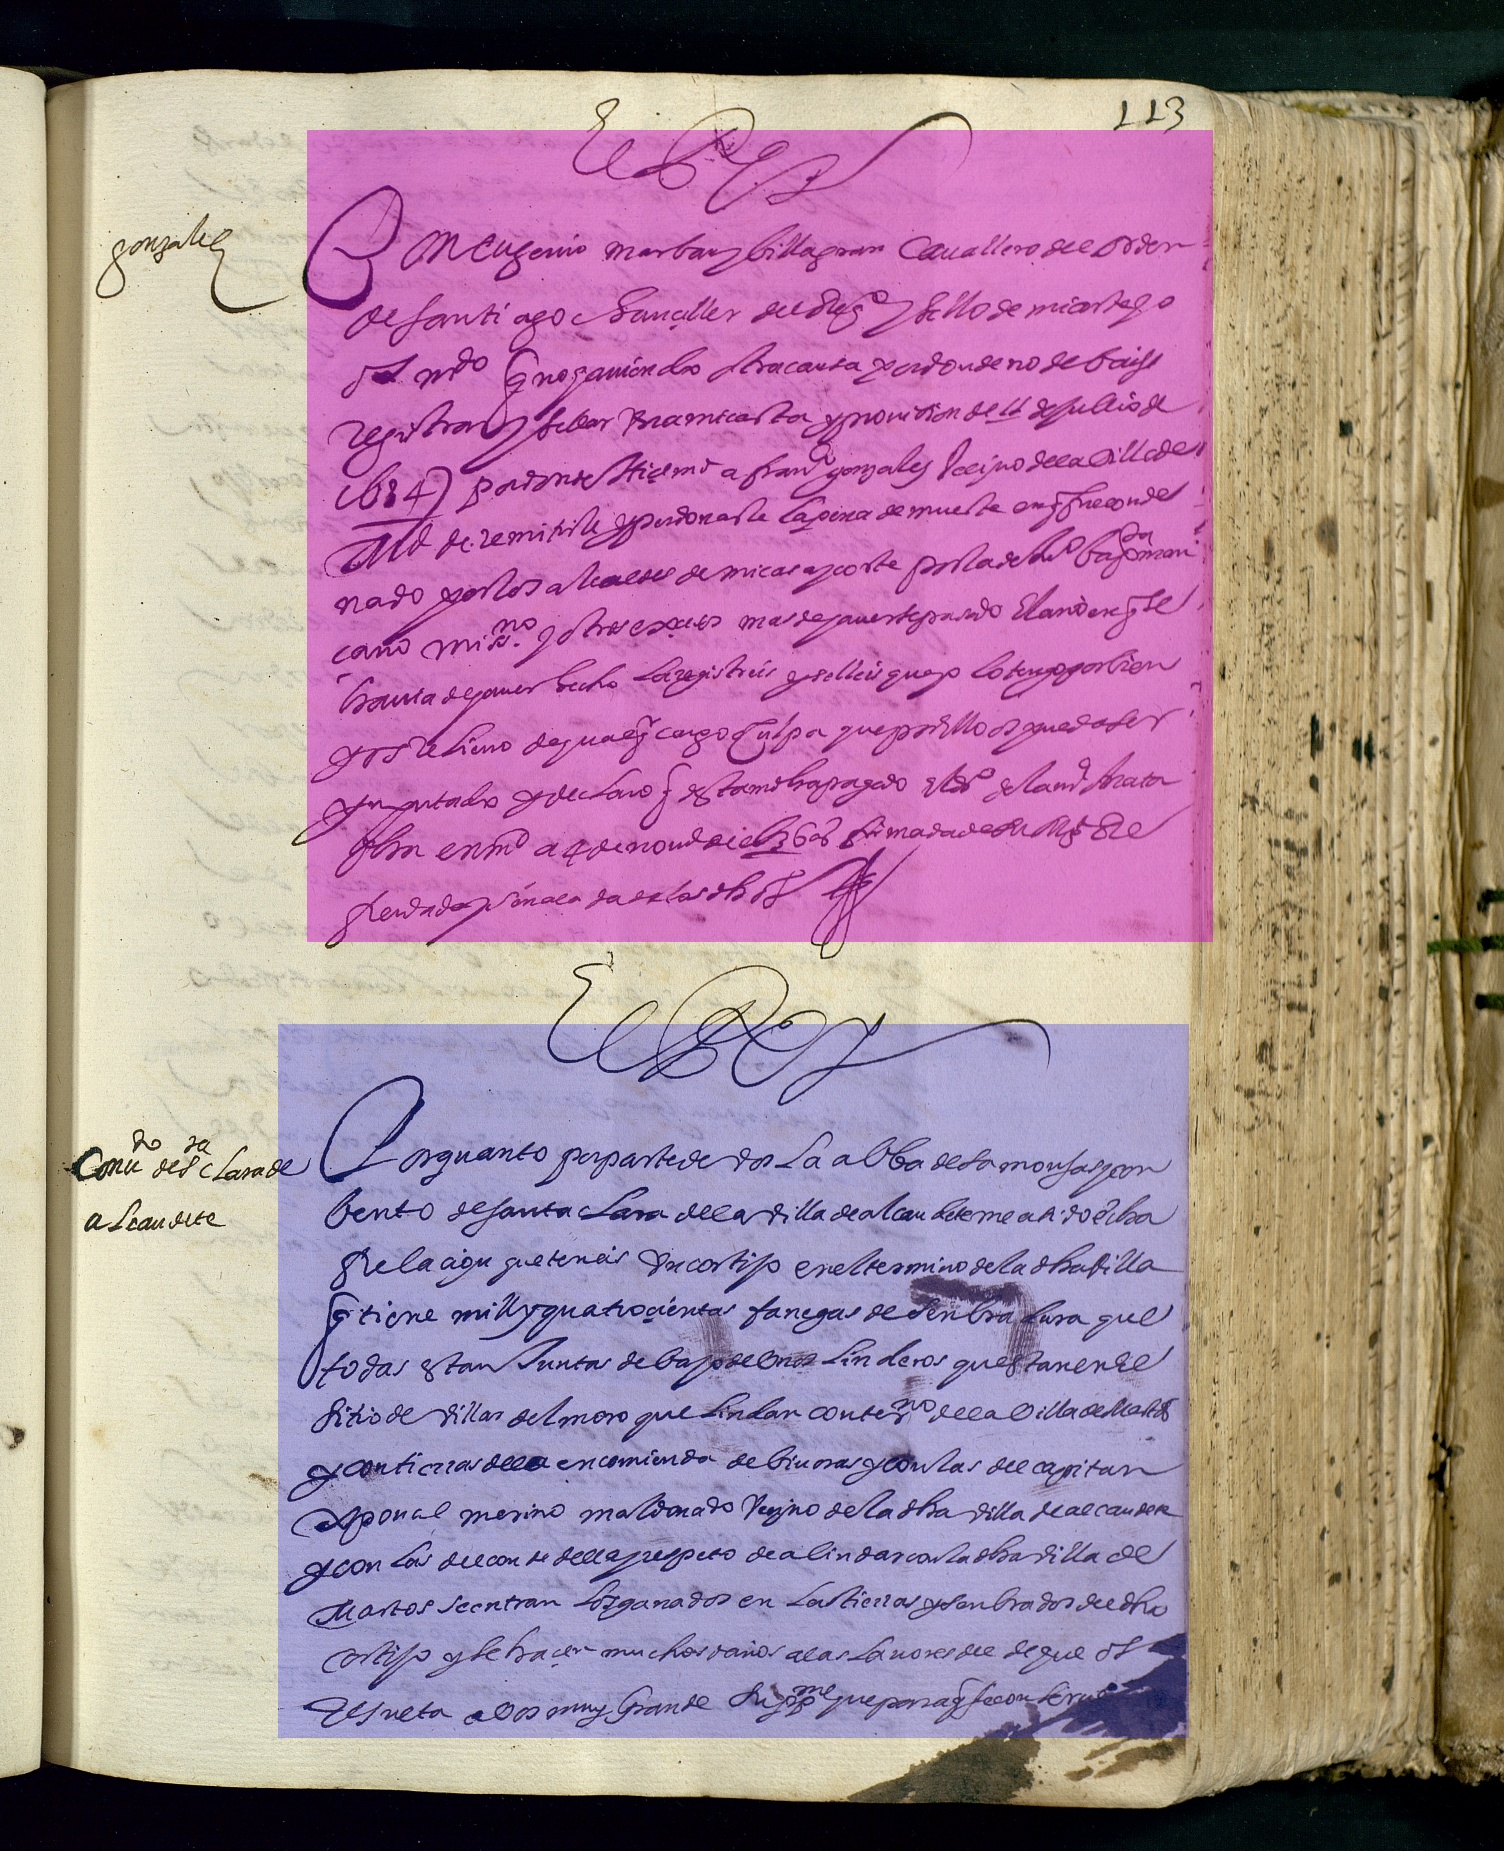 113
El Rey
gonzalez
Don Eugenio Marban y billagran Cauallero del orden
de santiago chanciller del Reg.o y sello de mi corte yo
os mdo q no hauiendo otra causa por donde no debais
registrar y sellar una mi carta y prouision de 11 de jullio de
(634) por donde hice md a fran.co gonzales vezino de la Villa de
Md de remitirle y perdonarle la pena de muerte en q fue conde
nado por los alcaldes de mi casa y corte por la de
cano y otros mas de hauerse pasado el año en q se
hauia de hauer hecho la registreis y selleis que yo lo tengo por bien
y os relieuo de qualq.r cargo o culpa que por ello os pueda ser
ynputado y declaro q desta md ha pagado el der.o de la md anata
fha en md a 4 de nou.e de firmada de su Mg.d Re
frendada y señalada de los dhos
El Rey
Conu.to de s.ta clara de
alcaudete
Por quanto por parte de vos La abbadesa monjas y con
bento de santa clara de la villa de alcaudete me a sido fecha
Relacion que teneis vn cortijo en el termino de la dha villa
q tiene mill y quatrocientas fanegas de senbradura que
todas estan Juntas debajo de unos linderos que estan en el
sitio de villar del moro que lindan con ter.no de la Villa de Martos
y con tierras de la encomienda de biuoras y con las del capitan
merino maldonado Vezino de la dha villa de alcaudete
y con las del conde della y respeto de alindar con la dha villa de
Martos se entran los ganados en las tierras y senbrados del dho
cortijo y se hacen muchos daños a las lauores del de que os
Resulta daño muy grande Supp.me que para q se conserue